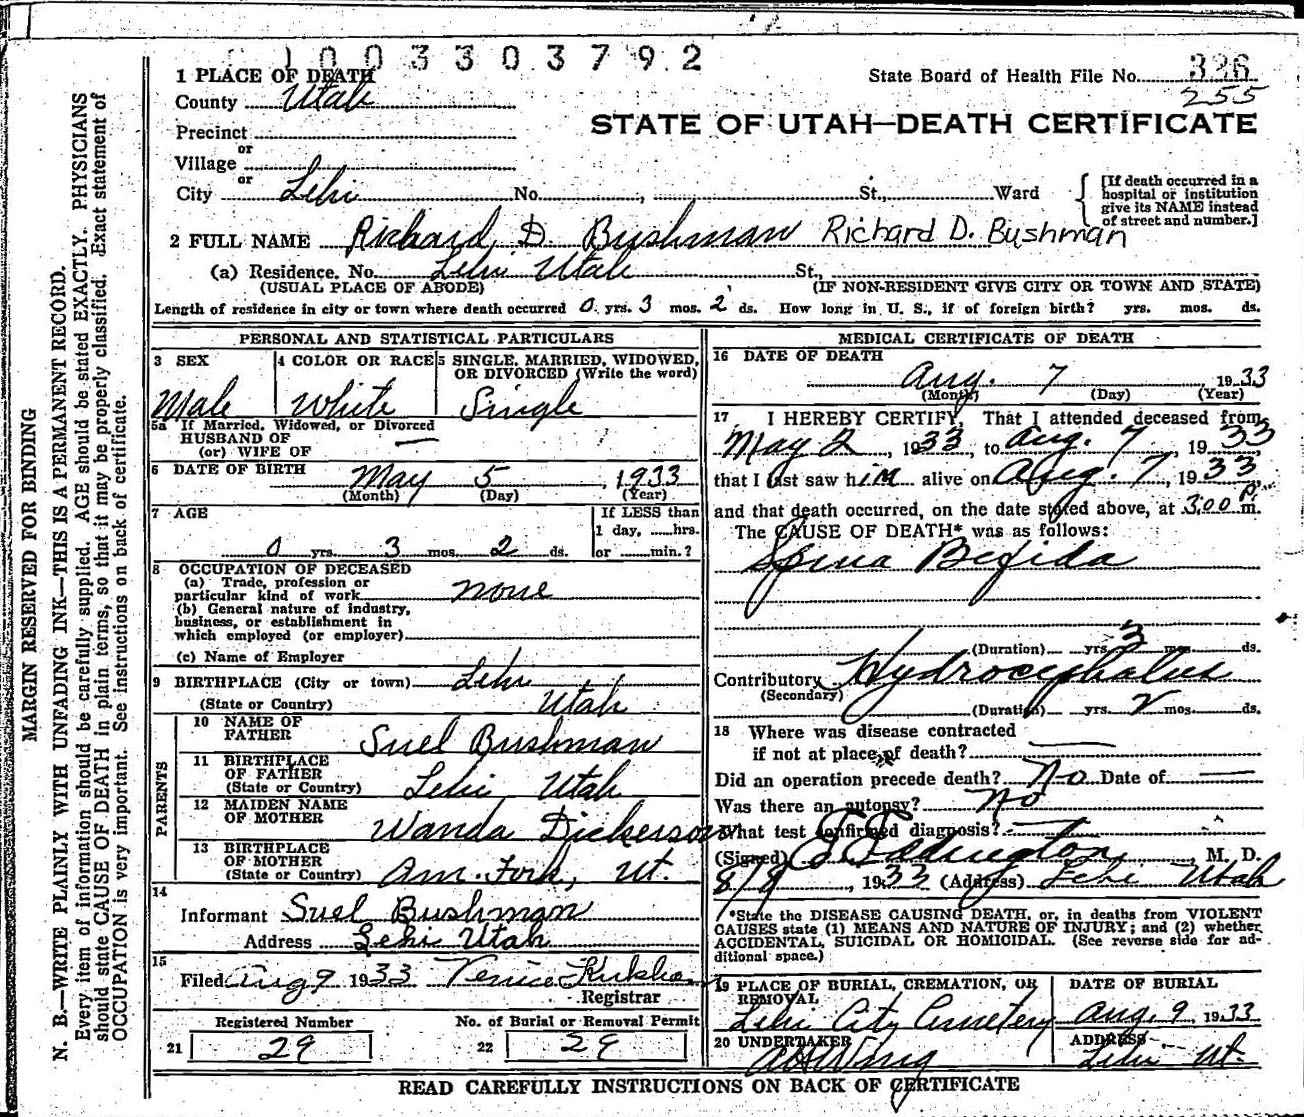 1003303792
1 PLACE OF DEATH
State Board of Health File No. 326
255
County Utah
STATE OF UTAH—DEATH CERTIFICATE
Precinct
or
Village
or
City Lehi No. , St., Ward
[If death occurred in a
hospital or institution
give its NAME instead
of street and number.]
2 FULL NAME Richard D. Bushman Richard D. Bushman
(a) Residence. No. Lehi Utah St.,
(USUAL PLACE OF ABODE) (IF NON-RESIDENT GIVE CITY OR TOWN AND STATE)
Length of residence in city or town where death occurred 0 yrs. 3 mos. 2 ds. How long in U. S., if of foreign birth? yrs. mos. ds.
PERSONAL AND STATISTICAL PARTICULARS
3 SEX
Male
4 COLOR OR RACE
White
5 SINGLE, MARRIED, WIDOWED,
OR DIVORCED (Write the word)
Single
5a If Married, Widowed, or Divorced
HUSBAND OF
(or) WIFE OF —
6 DATE OF BIRTH May 5, 1933
(Month) (Day) (Year)
7 AGE
0 yrs. 3 mos. 2 ds.
If LESS than
1 day, hrs.
or min.?
8 OCCUPATION OF DECEASED
(a) Trade, profession or
particular kind of work none
(b) General nature of industry,
business, or establishment in
which employed (or employer)
(c) Name of Employer
9 BIRTHPLACE (City or town) Lehi
(State or Country) Utah
PARENTS
10 NAME OF
FATHER Suel Bushman
11 BIRTHPLACE
OF FATHER
(State or Country) Lehi Utah
12 MAIDEN NAME
OF MOTHER Wanda Dickerson
13 BIRTHPLACE
OF MOTHER
(State or Country) Am. Fork, Ut.
14
Informant Suel Bushman
Address Lehi Utah
15
Filed Aug 9 1933
Registrar
Registered Number
21 29
No. of Burial or Removal Permit
22 29
MEDICAL CERTIFICATE OF DEATH
16 DATE OF DEATH
Aug. 7, 1933
(Month) (Day) (Year)
17 I HEREBY CERTIFY, That I attended deceased from
May 2, 1933, to Aug. 7, 1933
that I last saw him alive on Aug. 7, 1933
and that death occurred, on the date stated above, at 3:00 P. m.
The CAUSE OF DEATH* was as follows:
Spina Befida
(Duration) yrs. 3 mos. ds.
Contributory Hydrocephalus
(Secondary)
(Duration) yrs. 2 mos. ds.
18 Where was disease contracted
if not at place of death? —
Did an operation precede death? No Date of —
Was there an autopsy? No
What test confirmed diagnosis? —
(Signed) E. Eddington, M. D.
8/9, 1933 (Address) Lehi Utah
*State the DISEASE CAUSING DEATH, or, in deaths from VIOLENT
CAUSES state (1) MEANS AND NATURE OF INJURY; and (2) whether
ACCIDENTAL, SUICIDAL OR HOMICIDAL. (See reverse side for ad-
ditional space.)
19 PLACE OF BURIAL, CREMATION, OR
REMOVAL
Lehi City Cemetery
DATE OF BURIAL
Aug. 9, 1933
20 UNDERTAKER
ADDRESS
Lehi Ut.
READ CAREFULLY INSTRUCTIONS ON BACK OF CERTIFICATE
MARGIN RESERVED FOR BINDING
N. B.—WRITE PLAINLY WITH UNFADING INK—THIS IS A PERMANENT RECORD.
Every item of information should be carefully supplied. AGE should be stated EXACTLY. PHYSICIANS
should state CAUSE OF DEATH in plain terms, so that it may be properly classified. Exact statement of
OCCUPATION is very important. See instructions on back of certificate.